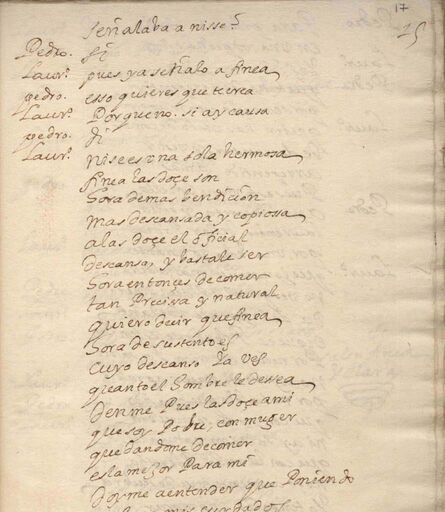 17
25
señalaba a nisse?
Pedro. Si
Laurº. pues ya señalo a finea
pedro. esso quieres que te crea
Laurº. Por que no. si ay causa
pedro. Di
Laurº. nise es una sola hermosa
finea las doçe son
hora de mas bendiçion
mas descansada y copiossa
a las doçe el ofiçial
descansa, y bastale ser
hora entonçes de comer
tan Precisa y natural
quiero deçir que finea
hora de sustento es
cuyo descanso ya ves
quanto el hombre le dessea
Denme Pues las doçe a mi
que soy Pobre, con muger
que dandome de comer
es la mejor Para mi
Doyme a entender que Poniendo
mis cuydados